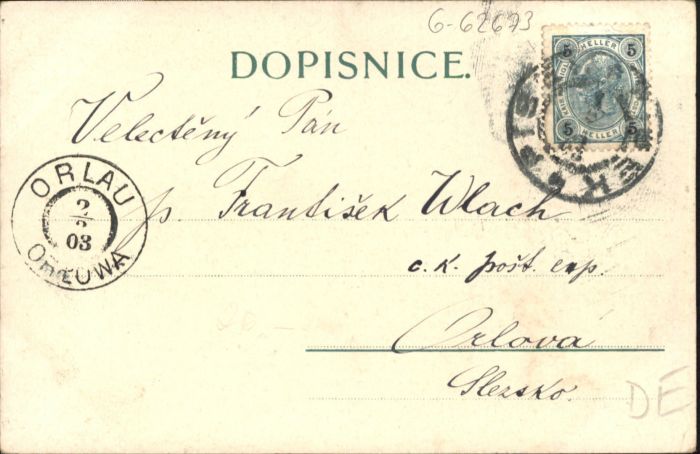 6-62673
DOPISNICE.
5 HELLER 5
5 HELLER 5
Velectěný Pán
ORLAU
2
03
ORŁOWA
p. František Wlach
c. k. pošt. exp.
Orlová
Slezsko.
DE